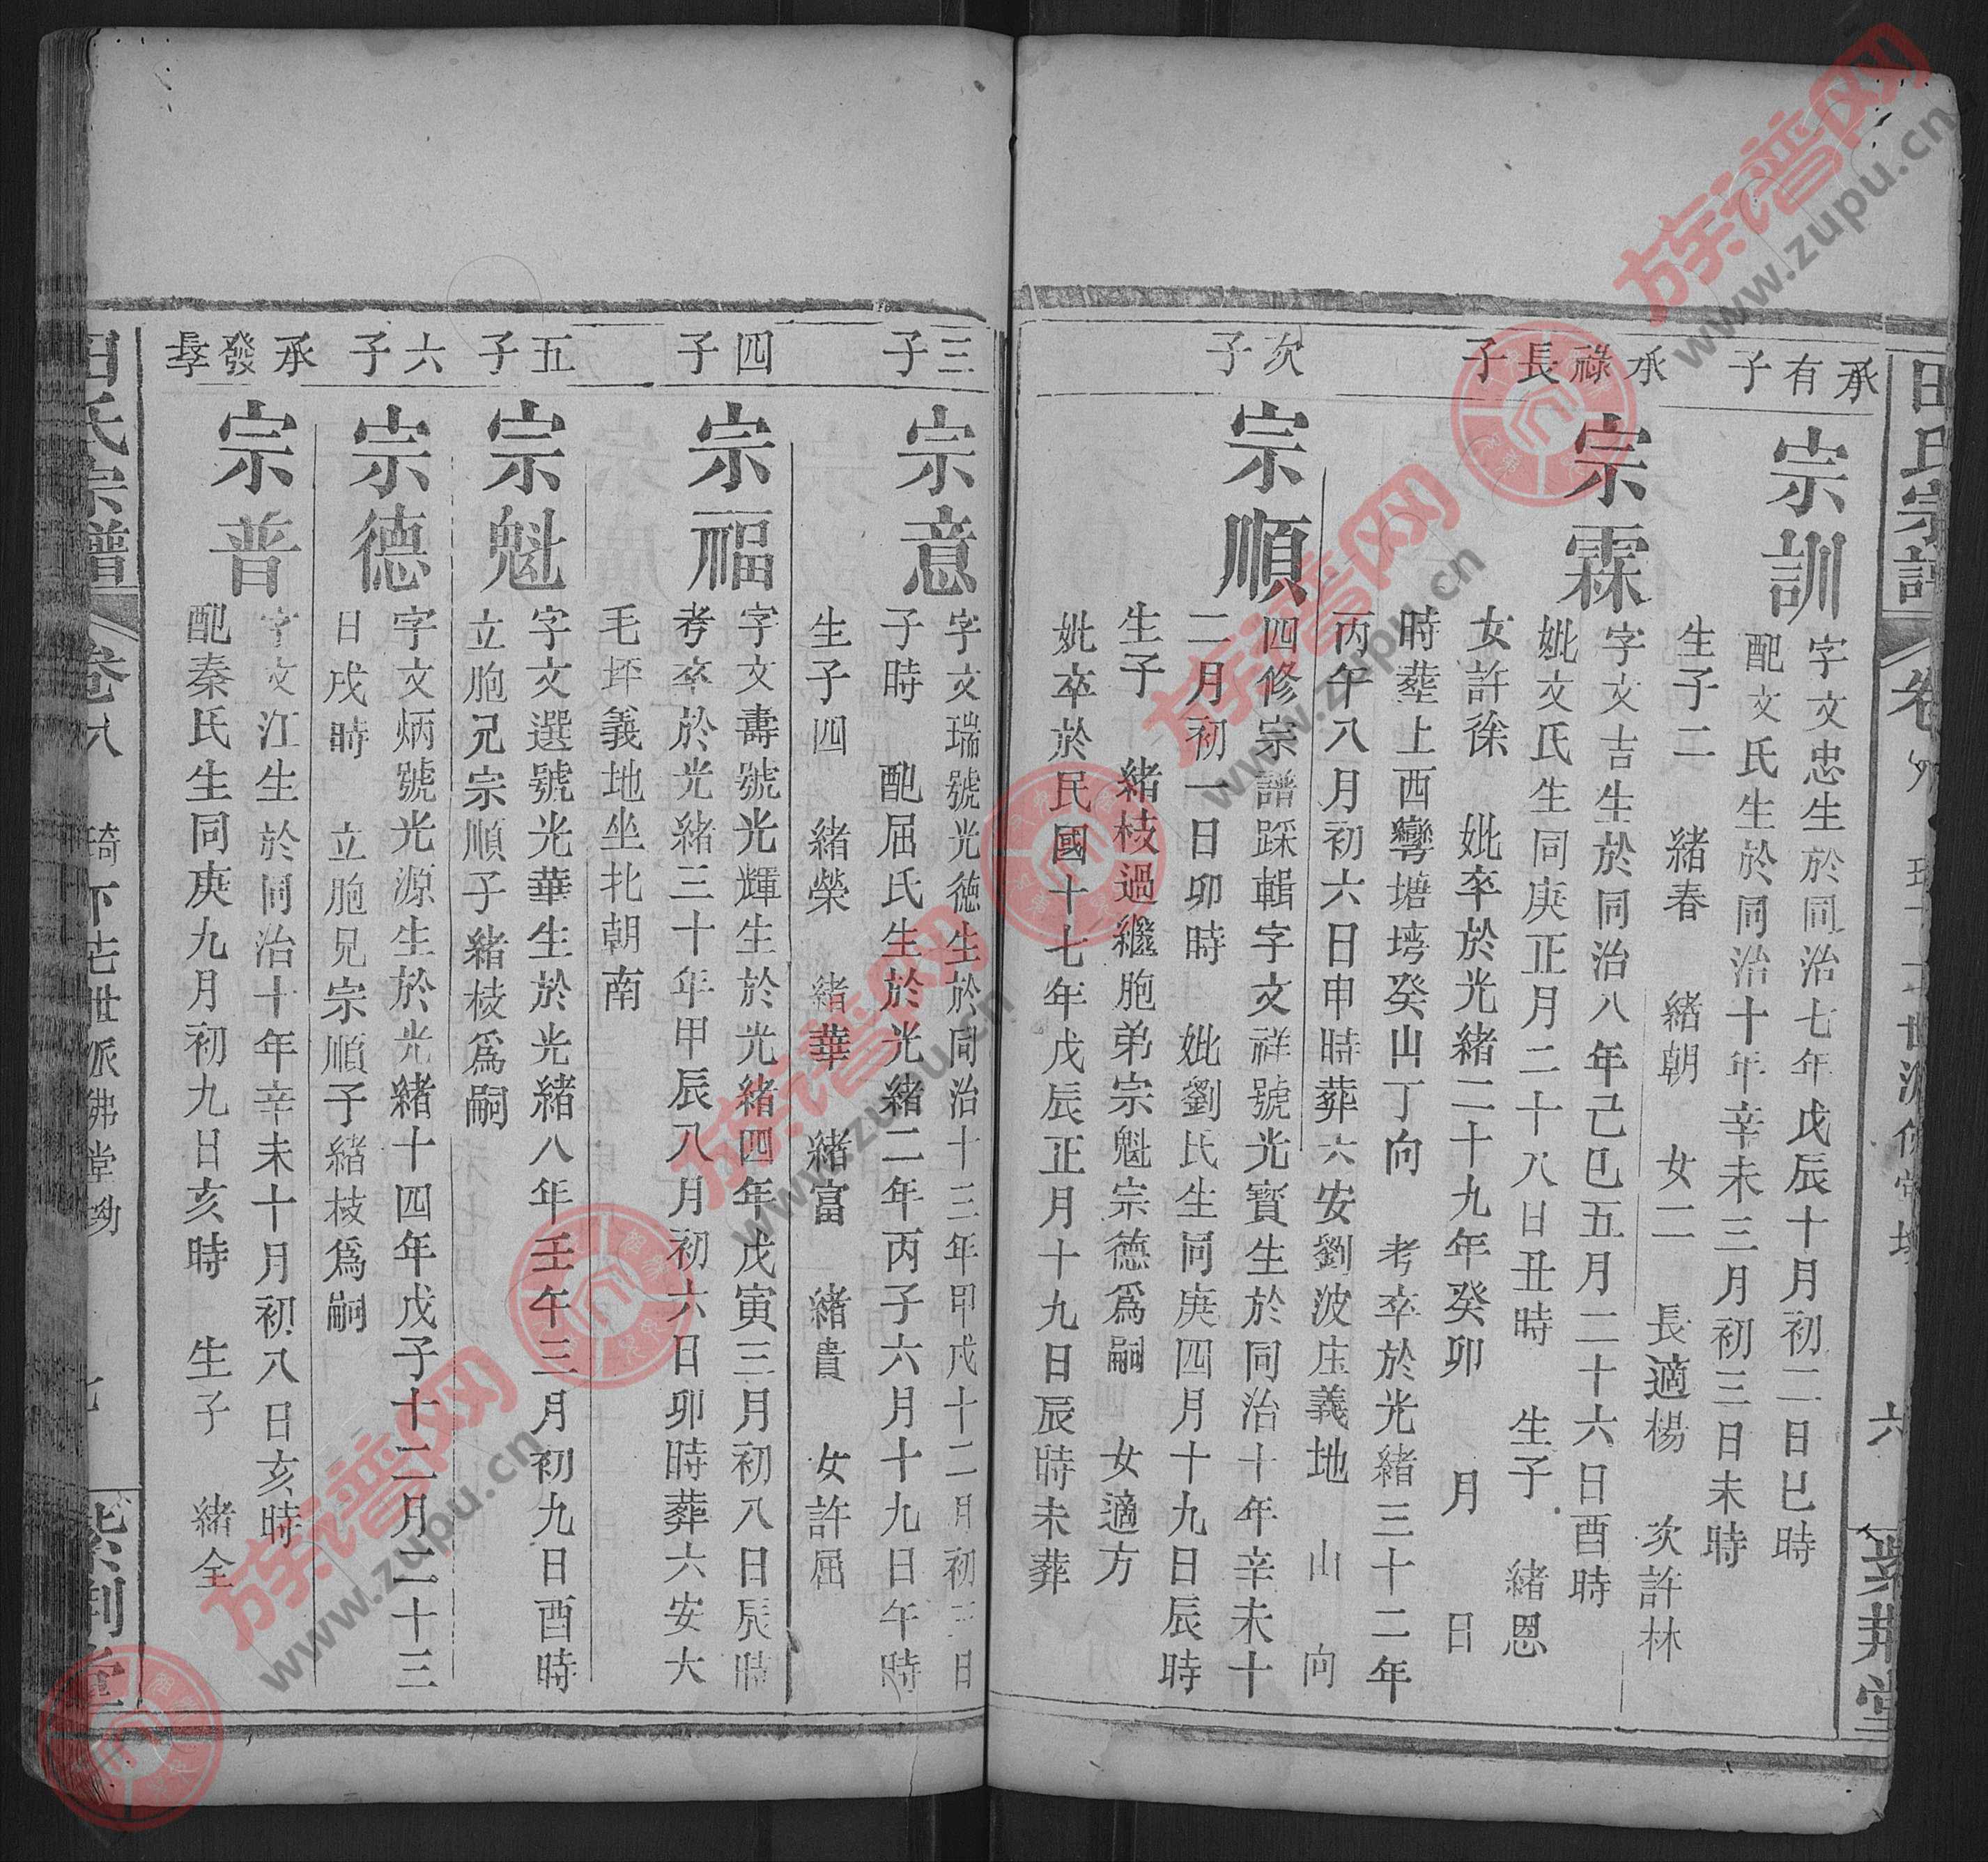 田氏宗譜
卷
六
紫荊堂
承有子
宗訓
字文忠生於同治七年戊辰十月初二日巳時
配文氏生於同治十年辛未三月初三日未時
生子二 緒春 緒朝 女二 長適楊 次許林
承祿長子
宗霖
字文吉生於同治八年己巳五月二十六日酉時
妣文氏生同庚正月二十八日丑時 生子 緒恩
女許徐 妣卒於光緒二十九年癸卯 月 日
時塟上西灣塘塆癸山丁向 考卒於光緒三十二年
丙午八月初六日申時葬六安劉波庄義地 山 向
次子
宗順
四修宗譜踩輯字文祥號光寶生於同治十年辛未十
二月初一日卯時 妣劉氏生同庚四月十九日辰時
生子 緒枝過繼胞弟宗魁宗德爲嗣 女適方
妣卒於民國十七年戊辰正月十九日辰時未葬
三子
宗意
字文瑞號光德生於同治十三年甲戌十二月初三日
子時 配屈氏生於光緒二年丙子六月十九日午時
生子四 緒榮 緒華 緒富 緒貴 女許屈
四子
宗福
字文壽號光輝生於光緒四年戊寅三月初八日辰時
考卒於光緒三十年甲辰八月初六日卯時葬六安大
毛坪義地坐北朝南
五子
宗魁
字文選號光華生於光緒八年壬午三月初九日酉時
立胞兄宗順子緒枝爲嗣
六子
宗德
字文炳號光源生於光緒十四年戊子十二月二十三
日戌時 立胞兄宗順子緒枝爲嗣
承發長子
宗普
字文江生於同治十年辛未十月初八日亥時
配秦氏生同庚九月初九日亥時 生子 緒全
田氏宗譜
卷八
琦下世派佛堂坳
七
紫荊堂
族谱网
www.zupu.cn
族谱网
www.zupu.cn
族谱网
www.zupu.cn
族谱网
www.zupu.cn